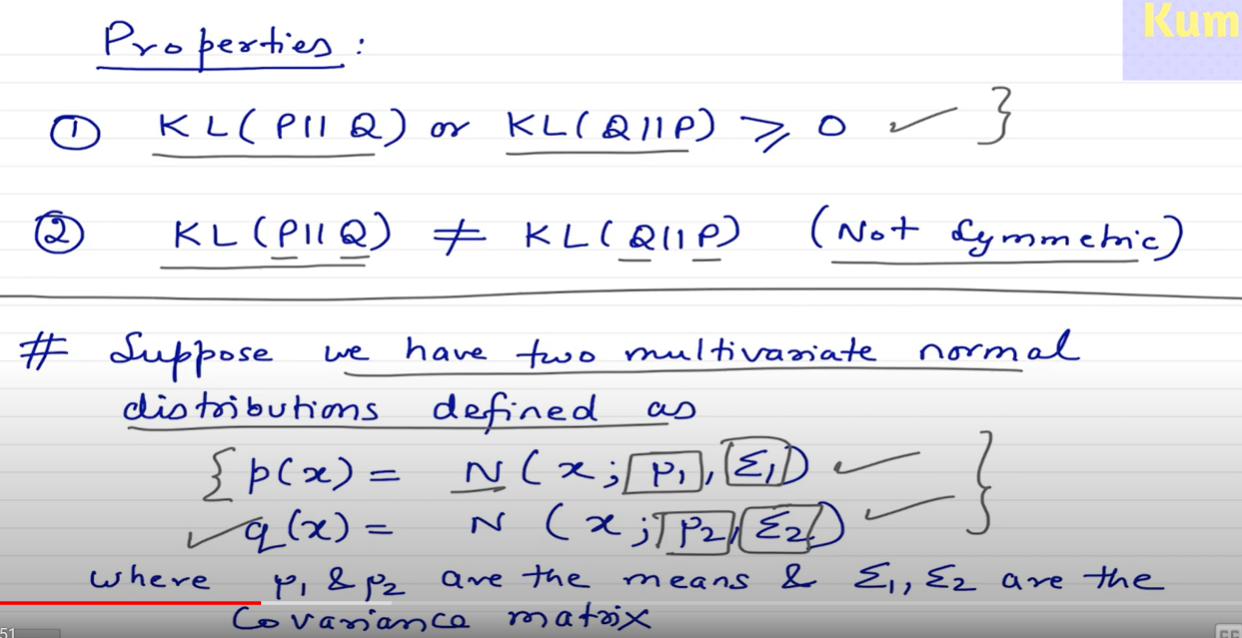 Kum
Properties:
① KL(P||Q) or KL(Q||P) ⩾ 0 ✓ }
② KL(P||Q) ≠ KL(Q||P) (Not Symmetric)
# Suppose we have two multivariate normal
distributions defined as
{ p(x) = N(x; μ₁, Σ₁) ✓ }
✓ q(x) = N(x; μ₂, Σ₂) ✓
where μ₁ & μ₂ are the means & Σ₁, Σ₂ are the
Covariance matrix
51
CC